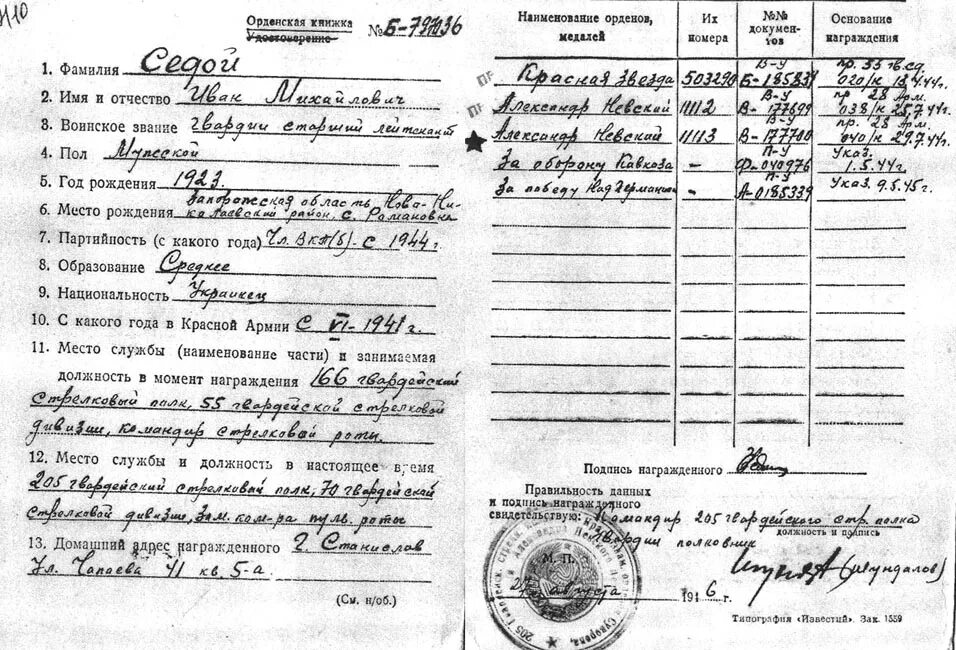 Орденская книжка
Удостоверение
№ Б-797036
1. Фамилия Седой
2. Имя и отчество Иван Михайлович
3. Воинское звание гвардии старший лейтенант
4. Пол Мужской
5. Год рождения 1923.
Запорожская область, Ново-Ни-
6. Место рождения колаевский район, с. Романовка
7. Партийность (с какого года) Чл. ВКП(б) - с 1944 г.
8. Образование Среднее
9. Национальность Украинец
10. С какого года в Красной Армии с VI-1941 г.
11. Место службы (наименование части) и занимаемая
должность в момент награждения 166 гвардейский
стрелковый полк, 55 гвардейской стрелковой
дивизии, командир стрелковой роты.
12. Место службы и должность в настоящее время
205 гвардейский стрелковый полк, 70 гвардейской
стрелковой дивизии, зам. ком-ра пул. роты
13. Домашний адрес награжденного г. Станислав
Ул. Чапаева 41 кв. 5-а.
(См. н/об.)
Наименование орденов, медалей
Их номера
№№ документов
Основание награждения
Красная Звезда 503290 В-У Б-185339 пр. 55 гв. сд 020/н 18.4.44г.
Александр Невский 11112 В-У В-177699 пр 28 Арм. 038/н 25.7.44г.
Александр Невский 11113 В-У В-177700 пр. 28 Арм. 040/н 29.7.44г.
За оборону Кавказа - П-У Ф-040976 Указ. 1.5.44г.
За победу Над Германией - П-У А-0185339 Указ. 9.5.45г.
Подпись награжденного
Правильность данных
и подпись награжденного
свидетельствую: Командир 205 гвардейского стр. полка
должность и подпись
Гвардии полковник
М. П.
августа 1946 г.
Типография «Известий». Зак. 1559